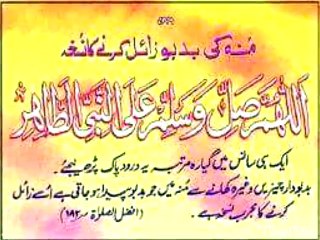 منہ کی بدبو زائل کرنے کا نسخہ
اَللّٰهُمَّ صَلِّ وَسَلِّمْ عَلَى النَّبِيِّ الطَّاهِرِ
ایک ہی سانس میں گیارہ مرتبہ یہ درود پاک پڑھ لیجئے۔
بدبودار چیزیں وغیرہ کھانے سے منہ میں جو بدبو پیدا ہو جاتی ہے اُسے زائل
کرنے کا مجرب نسخہ ہے۔ (افضل الصلوٰۃ ۔۱۹۲)